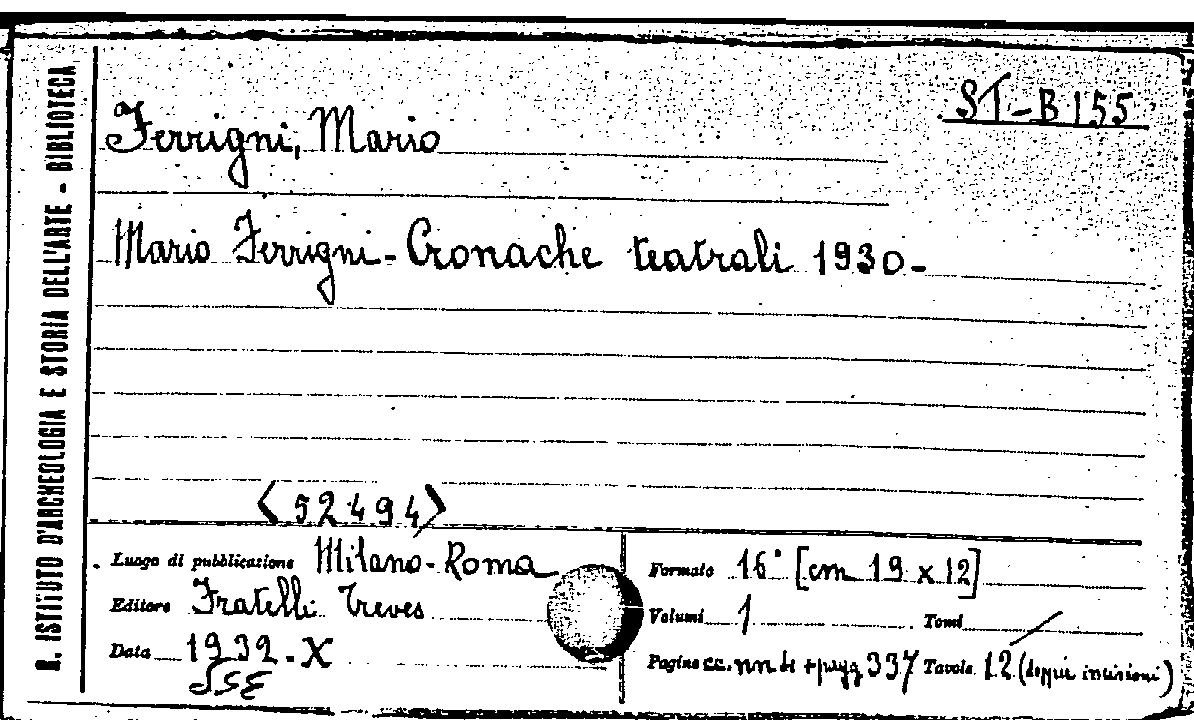 R. ISTITUTO D'ARCHEOLOGIA E STORIA DELL'ARTE - BIBLIOTECA
ST-B155
Ferrigni, Mario
Mario Ferrigni - Cronache teatrali 1930-
<52494>
Luogo di pubblicazione Milano-Roma
Editore Fratelli Treves
Data 1932-X
Formato 16° [cm 19 x 12]
Volumi 1 Tomi /
Pagine cc. nn 4 + pagg 337 Tavole 12 (doppie incisioni)